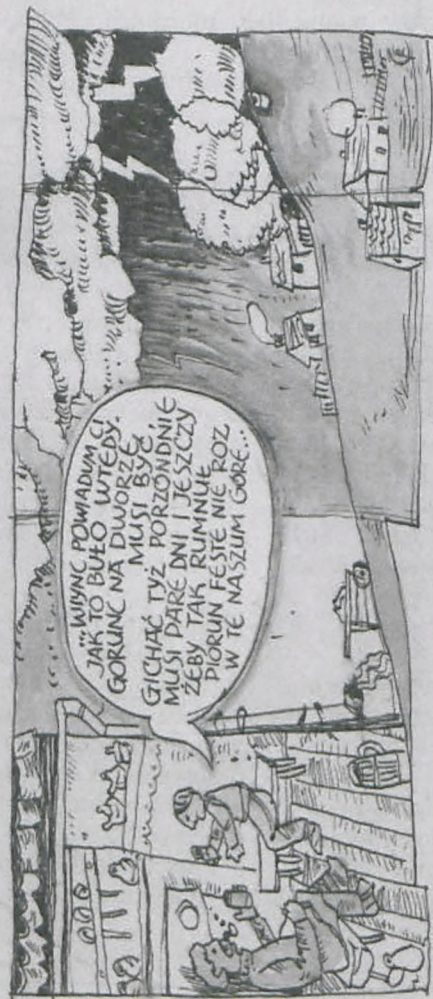 ...WIYNC POWIADUM CI
JAK TO BUŁO WTEDY.
GORUNC NA DWORZE
MUSI BYĆ,
GICHAĆ TYŻ PORZONDNIE
MUSI PARE DNI I JESZCZY
ŻEBY TAK RUMNUŁ
PIORUN FESTE NIE ROZ
W TE NASZUM GÓRE...